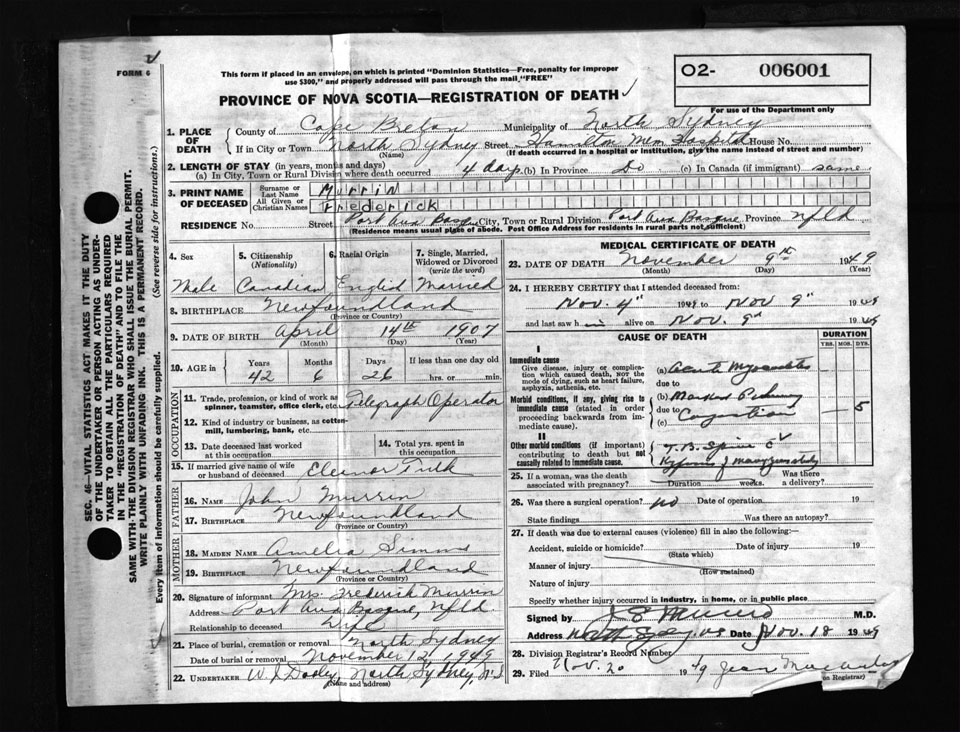 FORM 6
This form if placed in an envelope, on which is printed "Dominion Statistics—Free, penalty for improper
use $300," and properly addressed will pass through the mail "FREE"
O2- 006001
PROVINCE OF NOVA SCOTIA—REGISTRATION OF DEATH
For use of the Department only
1. PLACE OF DEATH
County of Cape Breton Municipality of North Sydney
If in City or Town North Sydney Street Hamilton Mem Hospital House No.
(Name) (If death occurred in a hospital or institution, give the name instead of street and number)
2. LENGTH OF STAY (in years, months and days)
(a) In City, Town or Rural Division where death occurred 4 days (b) In Province Do (c) In Canada (if immigrant) same
3. PRINT NAME OF DECEASED
Surname or Last Name Murrin
All Given or Christian Names Frederick
RESIDENCE No. Street Port Aux Basque City, Town or Rural Division Port Aux Basque Province Nfld
(Residence means usual place of abode. Post Office Address for residents in rural parts not sufficient)
4. Sex Male
5. Citizenship (Nationality) Canadian
6. Racial Origin English
7. Single, Married, Widowed or Divorced (write the word) Married
8. BIRTHPLACE Newfoundland
(Province or Country)
9. DATE OF BIRTH April 14th 1907
(Month) (Day) (Year)
10. AGE in Years 42 Months 6 Days 26 If less than one day old hrs. or min.
OCCUPATION
11. Trade, profession, or kind of work as spinner, teamster, office clerk, etc. Telegraph Operator
12. Kind of industry or business, as cotton-mill, lumbering, bank, etc.
13. Date deceased last worked at this occupation
14. Total yrs. spent in this occupation
15. If married give name of wife or husband of deceased Eleanor
FATHER
16. NAME John Murrin
17. BIRTHPLACE Newfoundland
(Province or Country)
MOTHER
18. MAIDEN NAME Amelia Simms
19. BIRTHPLACE Newfoundland
(Province or Country)
20. Signature of informant Mrs. Frederick Murrin
Address Port Aux Basque, Nfld.
Relationship to deceased Wife
21. Place of burial, cremation or removal North Sydney
Date of burial or removal November 12 1949
22. UNDERTAKER W. J. Dooley, North Sydney, N.S.
(Name and address)
MEDICAL CERTIFICATE OF DEATH
23. DATE OF DEATH November 9th 1949
(Month) (Day) (Year)
24. I HEREBY CERTIFY that I attended deceased from:
Nov. 4" 1949 to Nov 9" 1949
and last saw him alive on Nov. 9" 1949
CAUSE OF DEATH
DURATION
YRS. MOS. DYS.
I
Immediate cause
Give disease, injury or complication which caused death, not the mode of dying, such as heart failure, asphyxia, asthenia, etc.
(a) Acute Myocarditis
due to
Morbid conditions, if any, giving rise to immediate cause (stated in order proceeding backwards from immediate cause).
(b) Marked Pulmonary
due to Congestion 5
(c)
II
Other morbid conditions (if important) contributing to death but not causally related to immediate cause.
T.B. Spine
25. If a woman, was the death associated with pregnancy? Duration weeks. Was there a delivery?
26. Was there a surgical operation? no Date of operation 19
State findings Was there an autopsy?
27. If death was due to external causes (violence) fill in also the following:
Accident, suicide or homicide? Date of injury 19
(State which)
Manner of injury
(How sustained)
Nature of injury
Specify whether injury occurred in industry, in home, or in public place
Signed by M.D.
Address Date Nov. 18 1949
28. Division Registrar's Record Number
29. Filed Nov. 20 1949 Jean
on Registrar)
SEC. 46—VITAL STATISTICS ACT MAKES IT THE DUTY
OF THE UNDERTAKER OR PERSON ACTING AS UNDER-
TAKER TO OBTAIN ALL THE PARTICULARS REQUIRED
IN THE "REGISTRATION OF DEATH" AND TO FILE THE
SAME WITH THE DIVISION REGISTRAR WHO SHALL ISSUE THE BURIAL PERMIT.
WRITE PLAINLY WITH UNFADING INK. THIS IS A PERMANENT RECORD.
Every item of information should be carefully supplied. (See reverse side for instructions.)